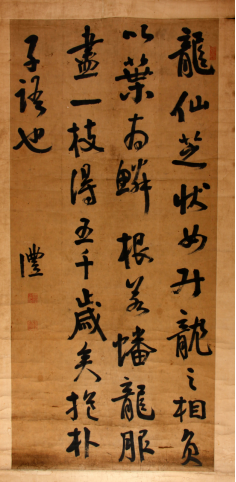 龍仙芝狀如升龍之相負
以葉為鱗根若蟠龍服
盡一枝得五千歲矣抱朴
子語也
澧